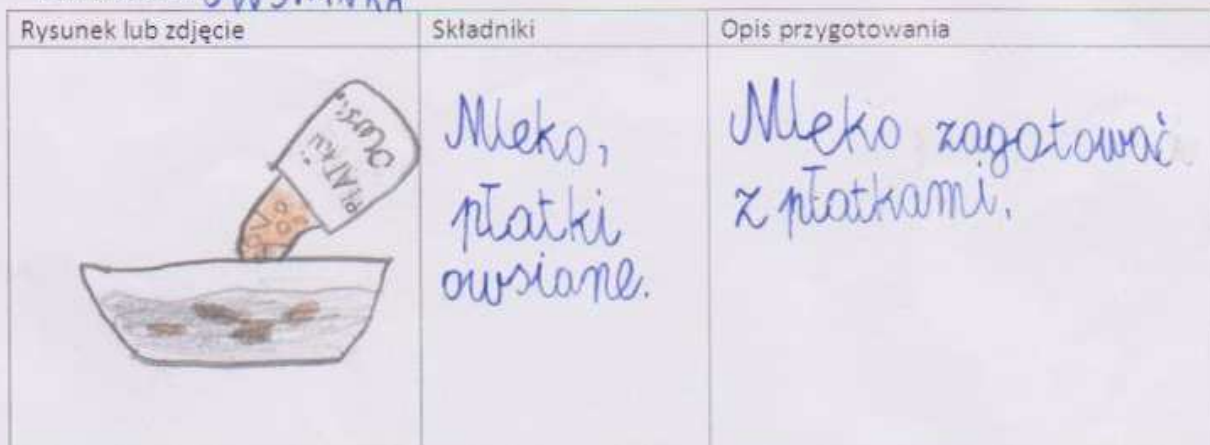 OWSIANKA
Rysunek lub zdjęcie
Składniki
Opis przygotowania
PŁATKI
Mleko,
płatki
owsiane.
Mleko zagotować
z płatkami.